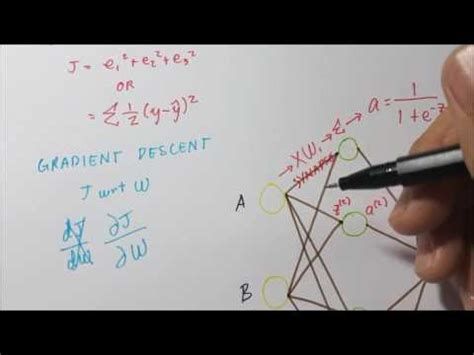 J = e₁² + e₂² + e₃²
OR
= Σ ½ (y-ŷ)²
GRADIENT DESCENT
J wrt W
dJ/dW ∂J/∂W
→ XW, Σ → a = 1/(1+e^-z)
SYNAPSE
A
z⁽²⁾ a⁽²⁾
B